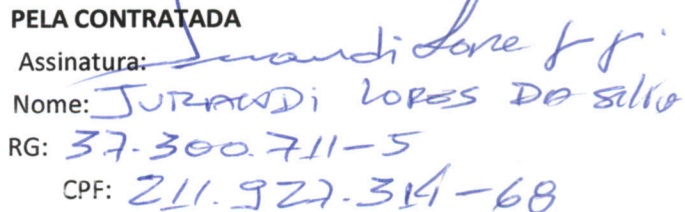 PELA CONTRATADA
Assinatura:
Nome: JURANDi LOPES DA Silva
RG: 37.300.711-5
CPF: 211.927.314-68